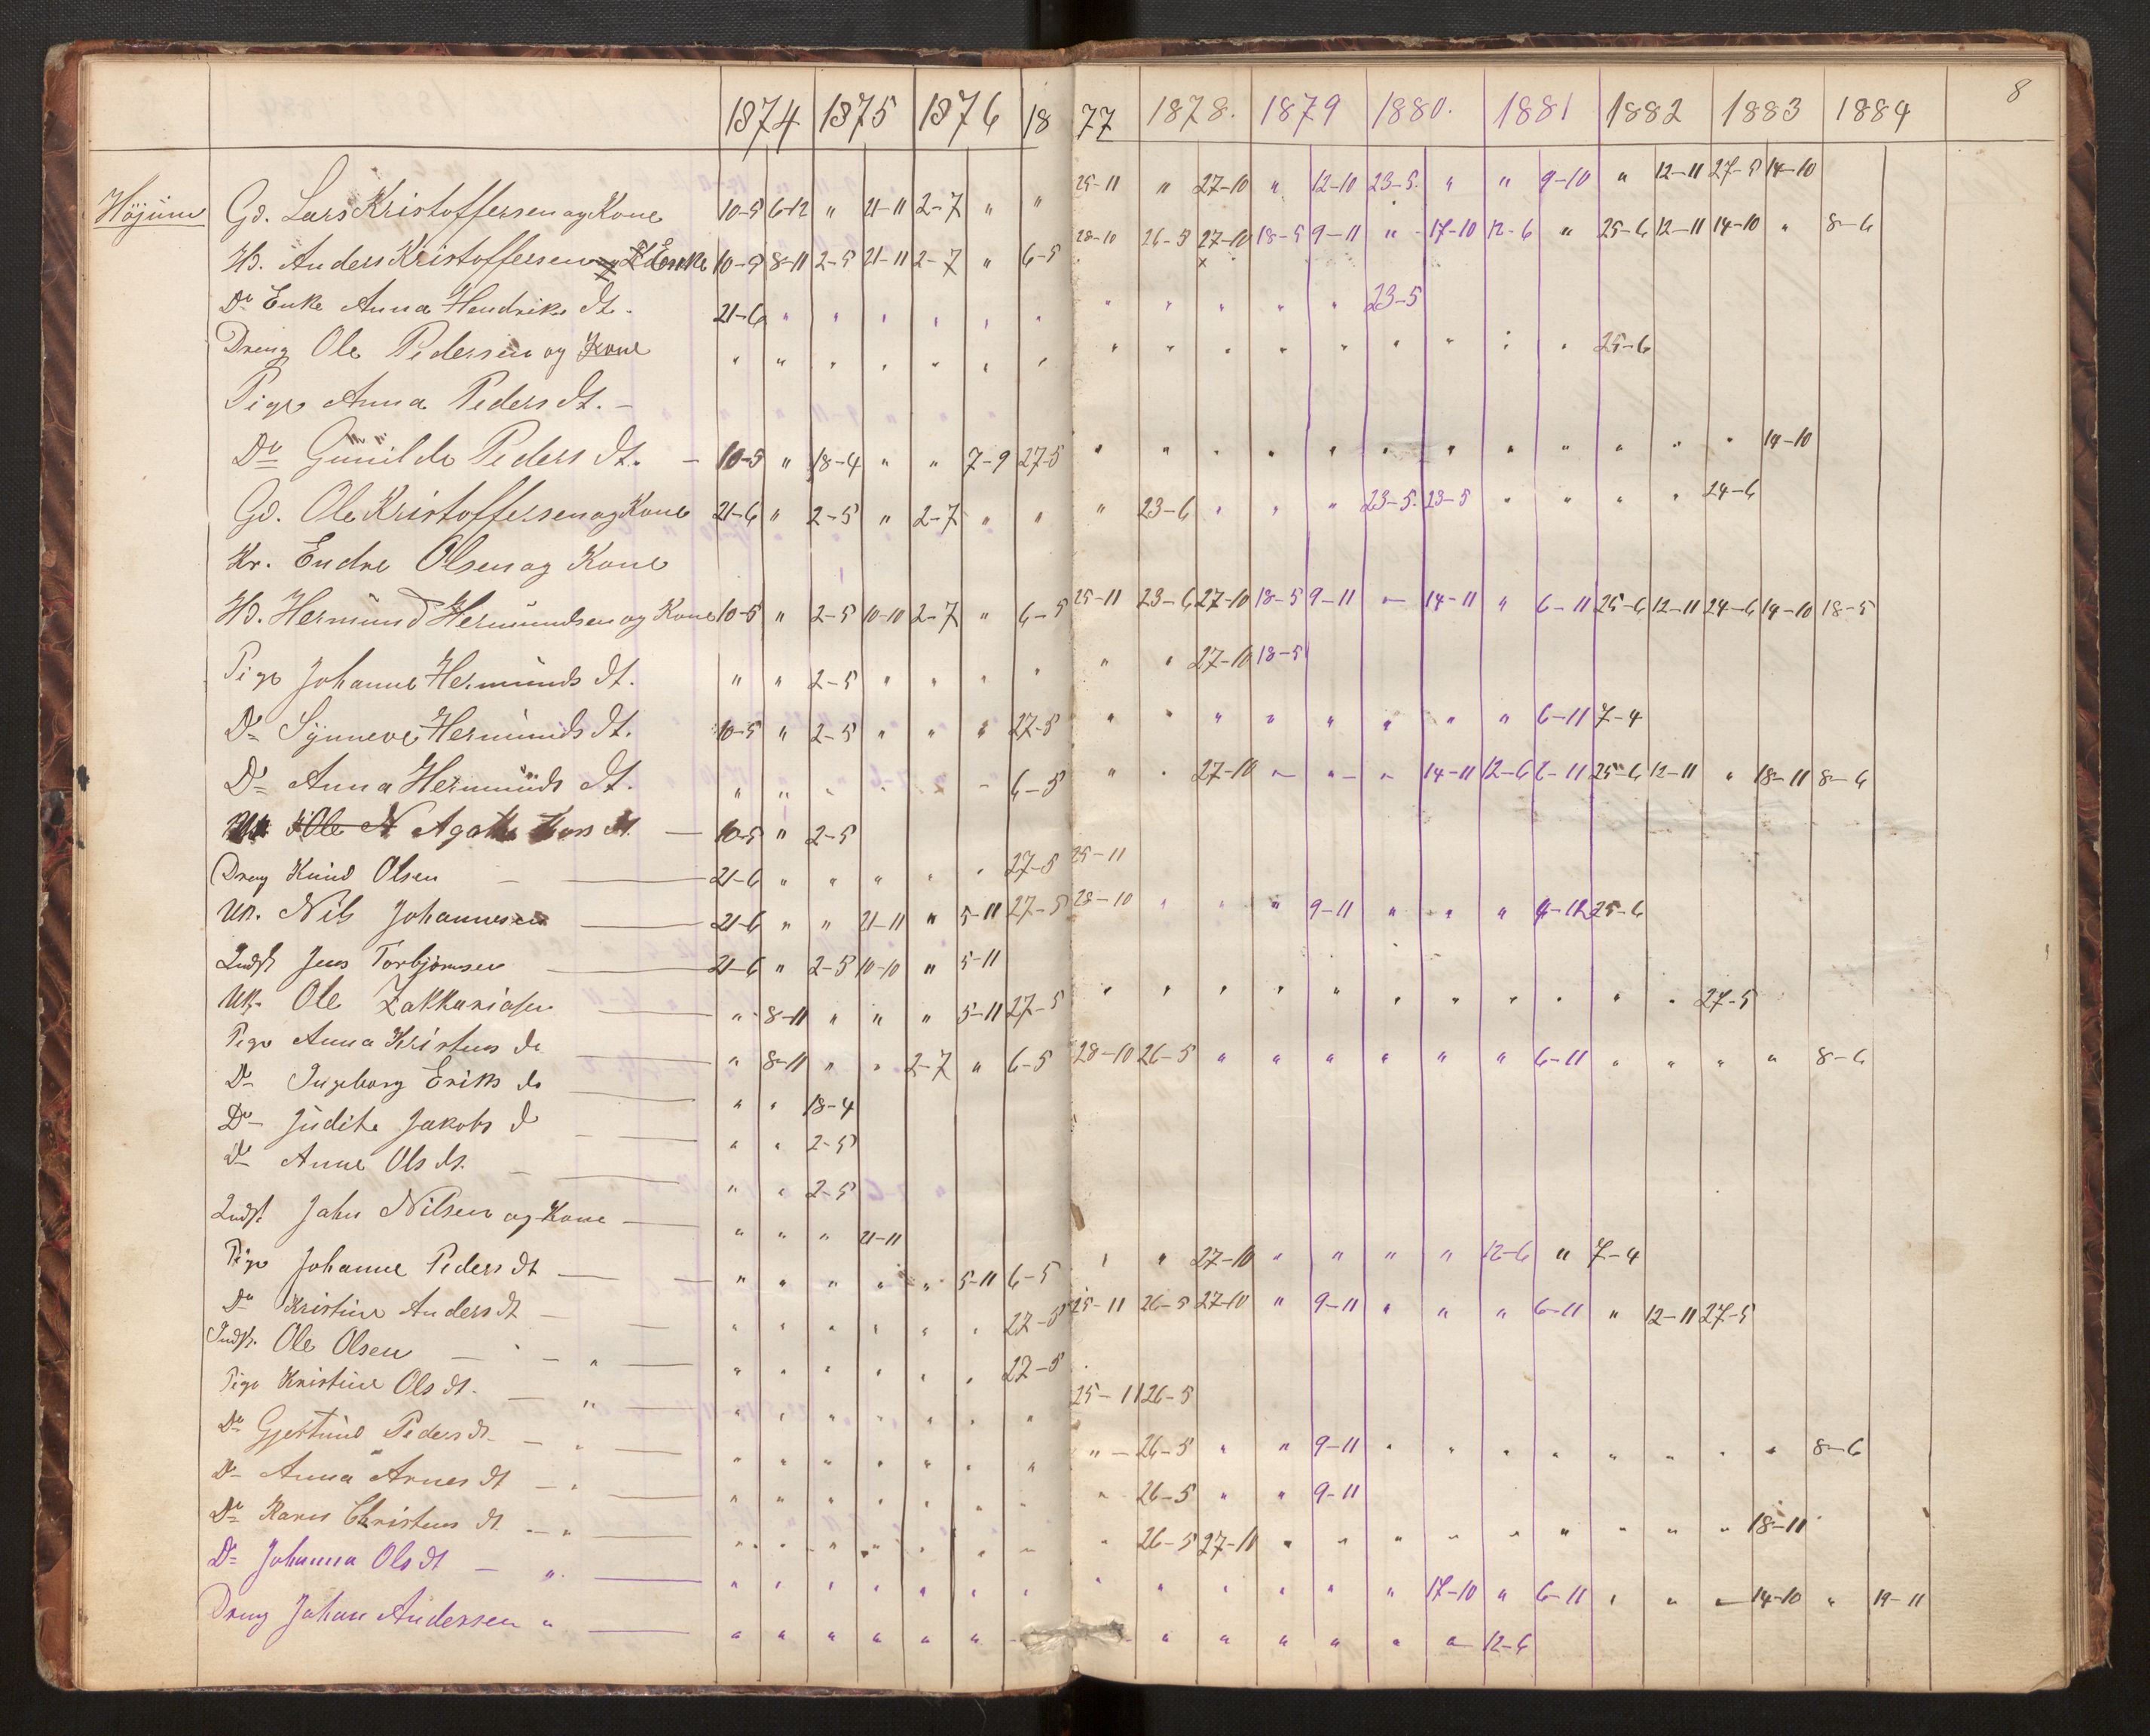 8
1874 1875 1876 1877 1878. 1879 1880. 1881 1882 1883 1884
Höjum Gd. Lars Kristoffersen og Kone 10-5 6-12 " 21-11 2-7 " " 25-11 " 27-10 " 12-10 23-5. " " 9-10 " 12-11 27-5 14-10
Hd. Anders Kristoffersen Enke 10-5 8-11 2-5 21-11 2-7 " 6-5 28-10 26-5 27-10 18-5 9-11 " 17-10 12-6 " 25-6 12-11 14-10 " 8-6
Do Enke Anna Hendriks dt. 21-6 " " " " " " " " " " " 23-5
Dreng Ole Pedersen og Kone " " " " " " " " " " " " " " " " 25-6
Pige Anna Peders dt. -
Do Gunilde Peders dt. - 10-5 " 18-4 " " 7-9 27-5 " " " " " " " " " " " " 14-10
Gd. Ole Kristoffersen og Kone 21-6 " 2-5 " 2-7 " " " 23-6 " " " 23-5. 23-5 " " " " 24-6
Kr. Endre Olsen og Kone
Hd. Hermund Hermundsen og Kone 10-5 " 2-5 10-10 2-7 " 6-5 25-11 23-6 27-10 18-5 9-11 " 14-11 " 6-11 25-6 12-11 24-6 14-10 18-5
Pige Johanne Hermunds dt. " " 2-5 " " " " " " 27-10 18-5
Do Synneve Hermunds dt. 10-5 " 2-5 " " " 27-5 " " " " " " " " 6-11 7-4
Do Anna Hermunds dt. " " " " " " 6-5 " " 27-10 " " " 14-11 12-6 6-11 25-6 12-11 " 18-11 8-6
Ole N Agathe dt. - 10-5 " 2-5
Dreng Knud Olsen - 21-6 " " " " " 27-5 25-11
Uk. Nils Johannesen - 21-6 " " 21-11 " 5-11 27-5 28-10 " " " 9-11 " " " 4-12 25-6
Indst Jens Torbjörnsen - 21-6 " 2-5 10-10 " 5-11
Uk. Ole Zakkariasen - " 8-11 " " " 5-11 27-5 " " " " " " " " " " " 27-5
Pige Anna Kristens do - " 8-11 " " 2-7 " 6-5 28-10 26-5 " " " " " " 6-11 " " " " 8-6
Do Ingeborg Eriks do - " " 18-4
Do Judithe Jakobs d - " " 2-5
Do Anne Ols dt. - " " 2-5
Indst John Nilsen og Kone - " " " 21-11
Pige Johanne Peders dt - " " " " " 5-11 6-5 " " 27-10 " " " " 12-6 " 7-4
Do Kristine Anders dt - " " " " " " 27-5 25-11 26-5 27-10 " 9-11 " " " 6-11 " 12-11 27-5
Indst. Ole Olsen - " - " " " " " " 27-5
Pige Kristine Ols dt. - " - " " " " " " " 25-11 26-5
Do Gjertrud Peders dt - " - " " " " " " " " 26-5 " " 9-11 " " " " " " " " 8-6
Do Anna Arnes dt - " - " " " " " " " " 26-5 " " 9-11
Do Karen Christens dt - " - " " " " " " " " 26-5 27-10 " " " " " " " " " 18-11
Do Johanna Ols dt - " - " " " " " " " " " " " " " 17-10 " 6-11 " " " 14-10 " 19-11
Dreng Johan Andersen " - " " " " " " " " " " " " " 12-6